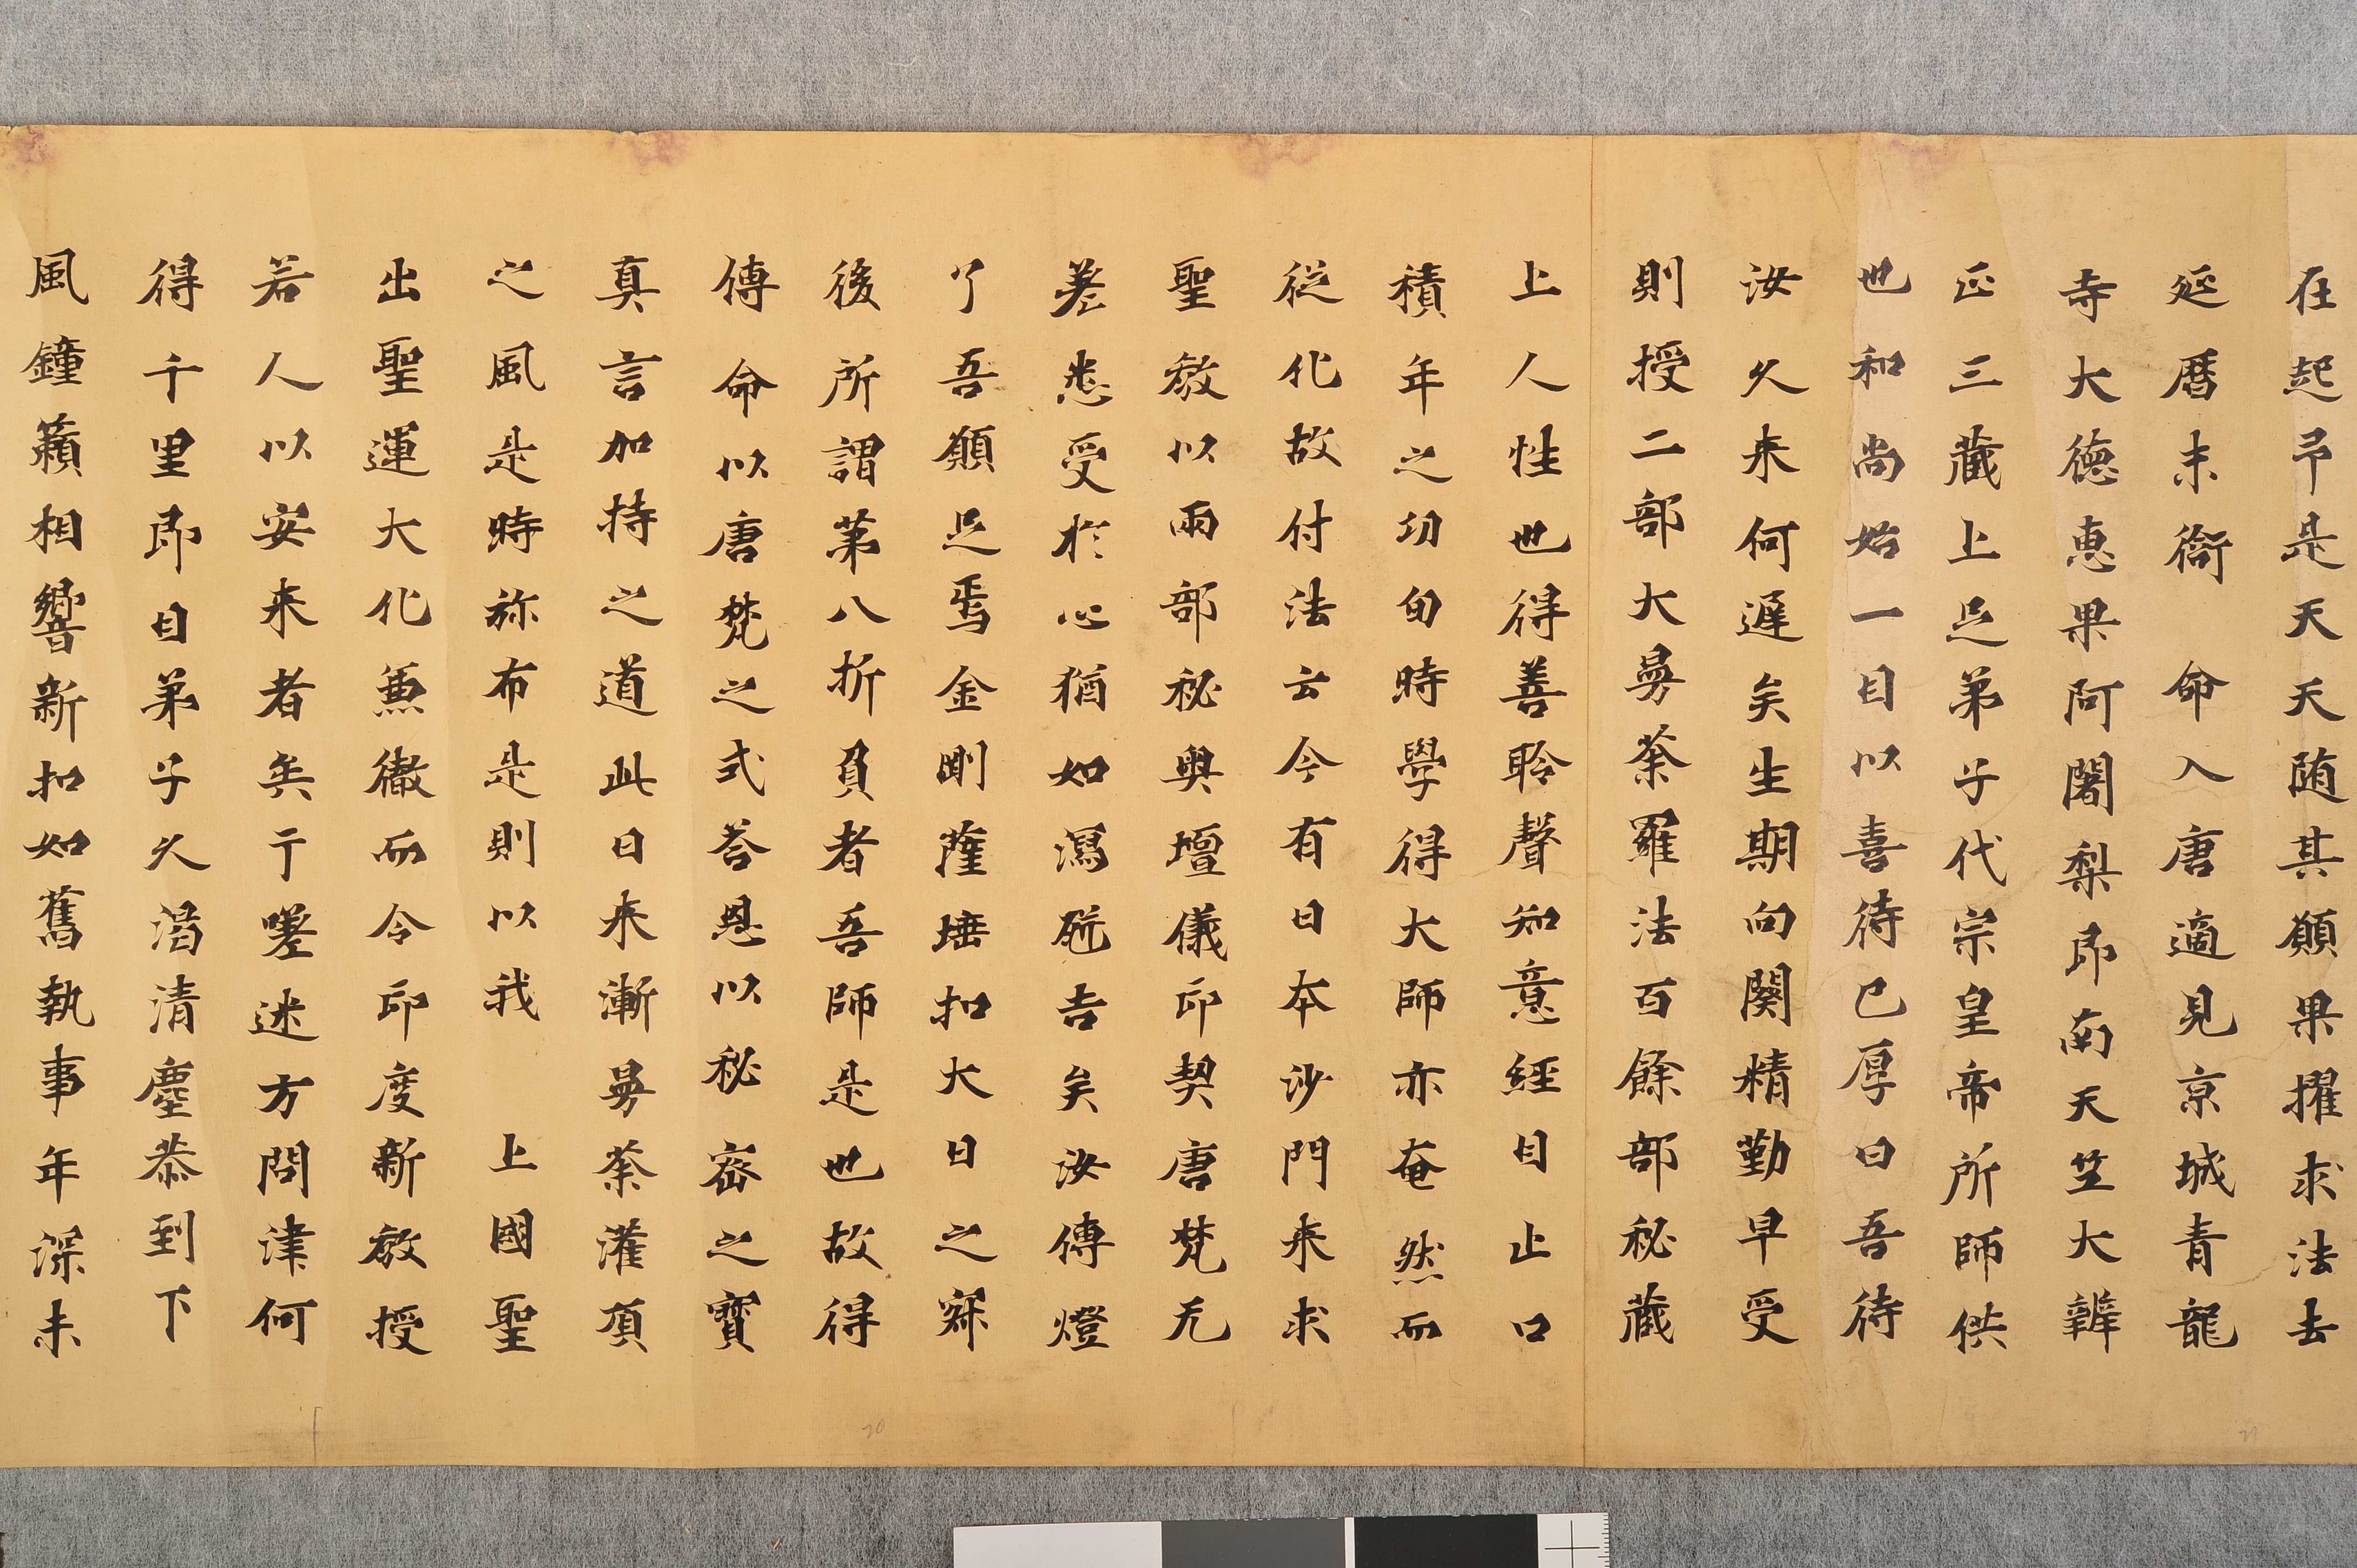 在起予是天天随其願果擢求法去
延暦末銜　命入唐適見京城青龍
寺大徳恵果阿闍梨即南天竺大辨
正三藏上足弟子代宗皇帝所師供
也和尚始一目以喜待已厚曰吾待
汝久来何遅矣生期向闋精勤早受
則授二部大曼荼羅法百餘部秘藏
上人性也得善聆聲知意經目止口
積年之功旬時學得大師亦奄然而
従化故付法云今有日本沙門来求
聖教以兩部秘奥壇儀印契唐梵无
差悉受於心猶如瀉瓶吉矣汝傳燈
了吾願足焉金剛薩埵扣大日之寐
後所謂苐八折負者吾師是也故得
傳命以唐梵之式荅恩以秘密之寶
真言加持之道此日来漸曼荼灌頂
之風是時弥布是則以我　上國聖
出聖運大化兼徹而令印度新教授
若人以安来者矣亍嗟迷方問津何
得千里即目弟子久渇清塵恭到下
風鐘籟相響新扣如舊執事年深未